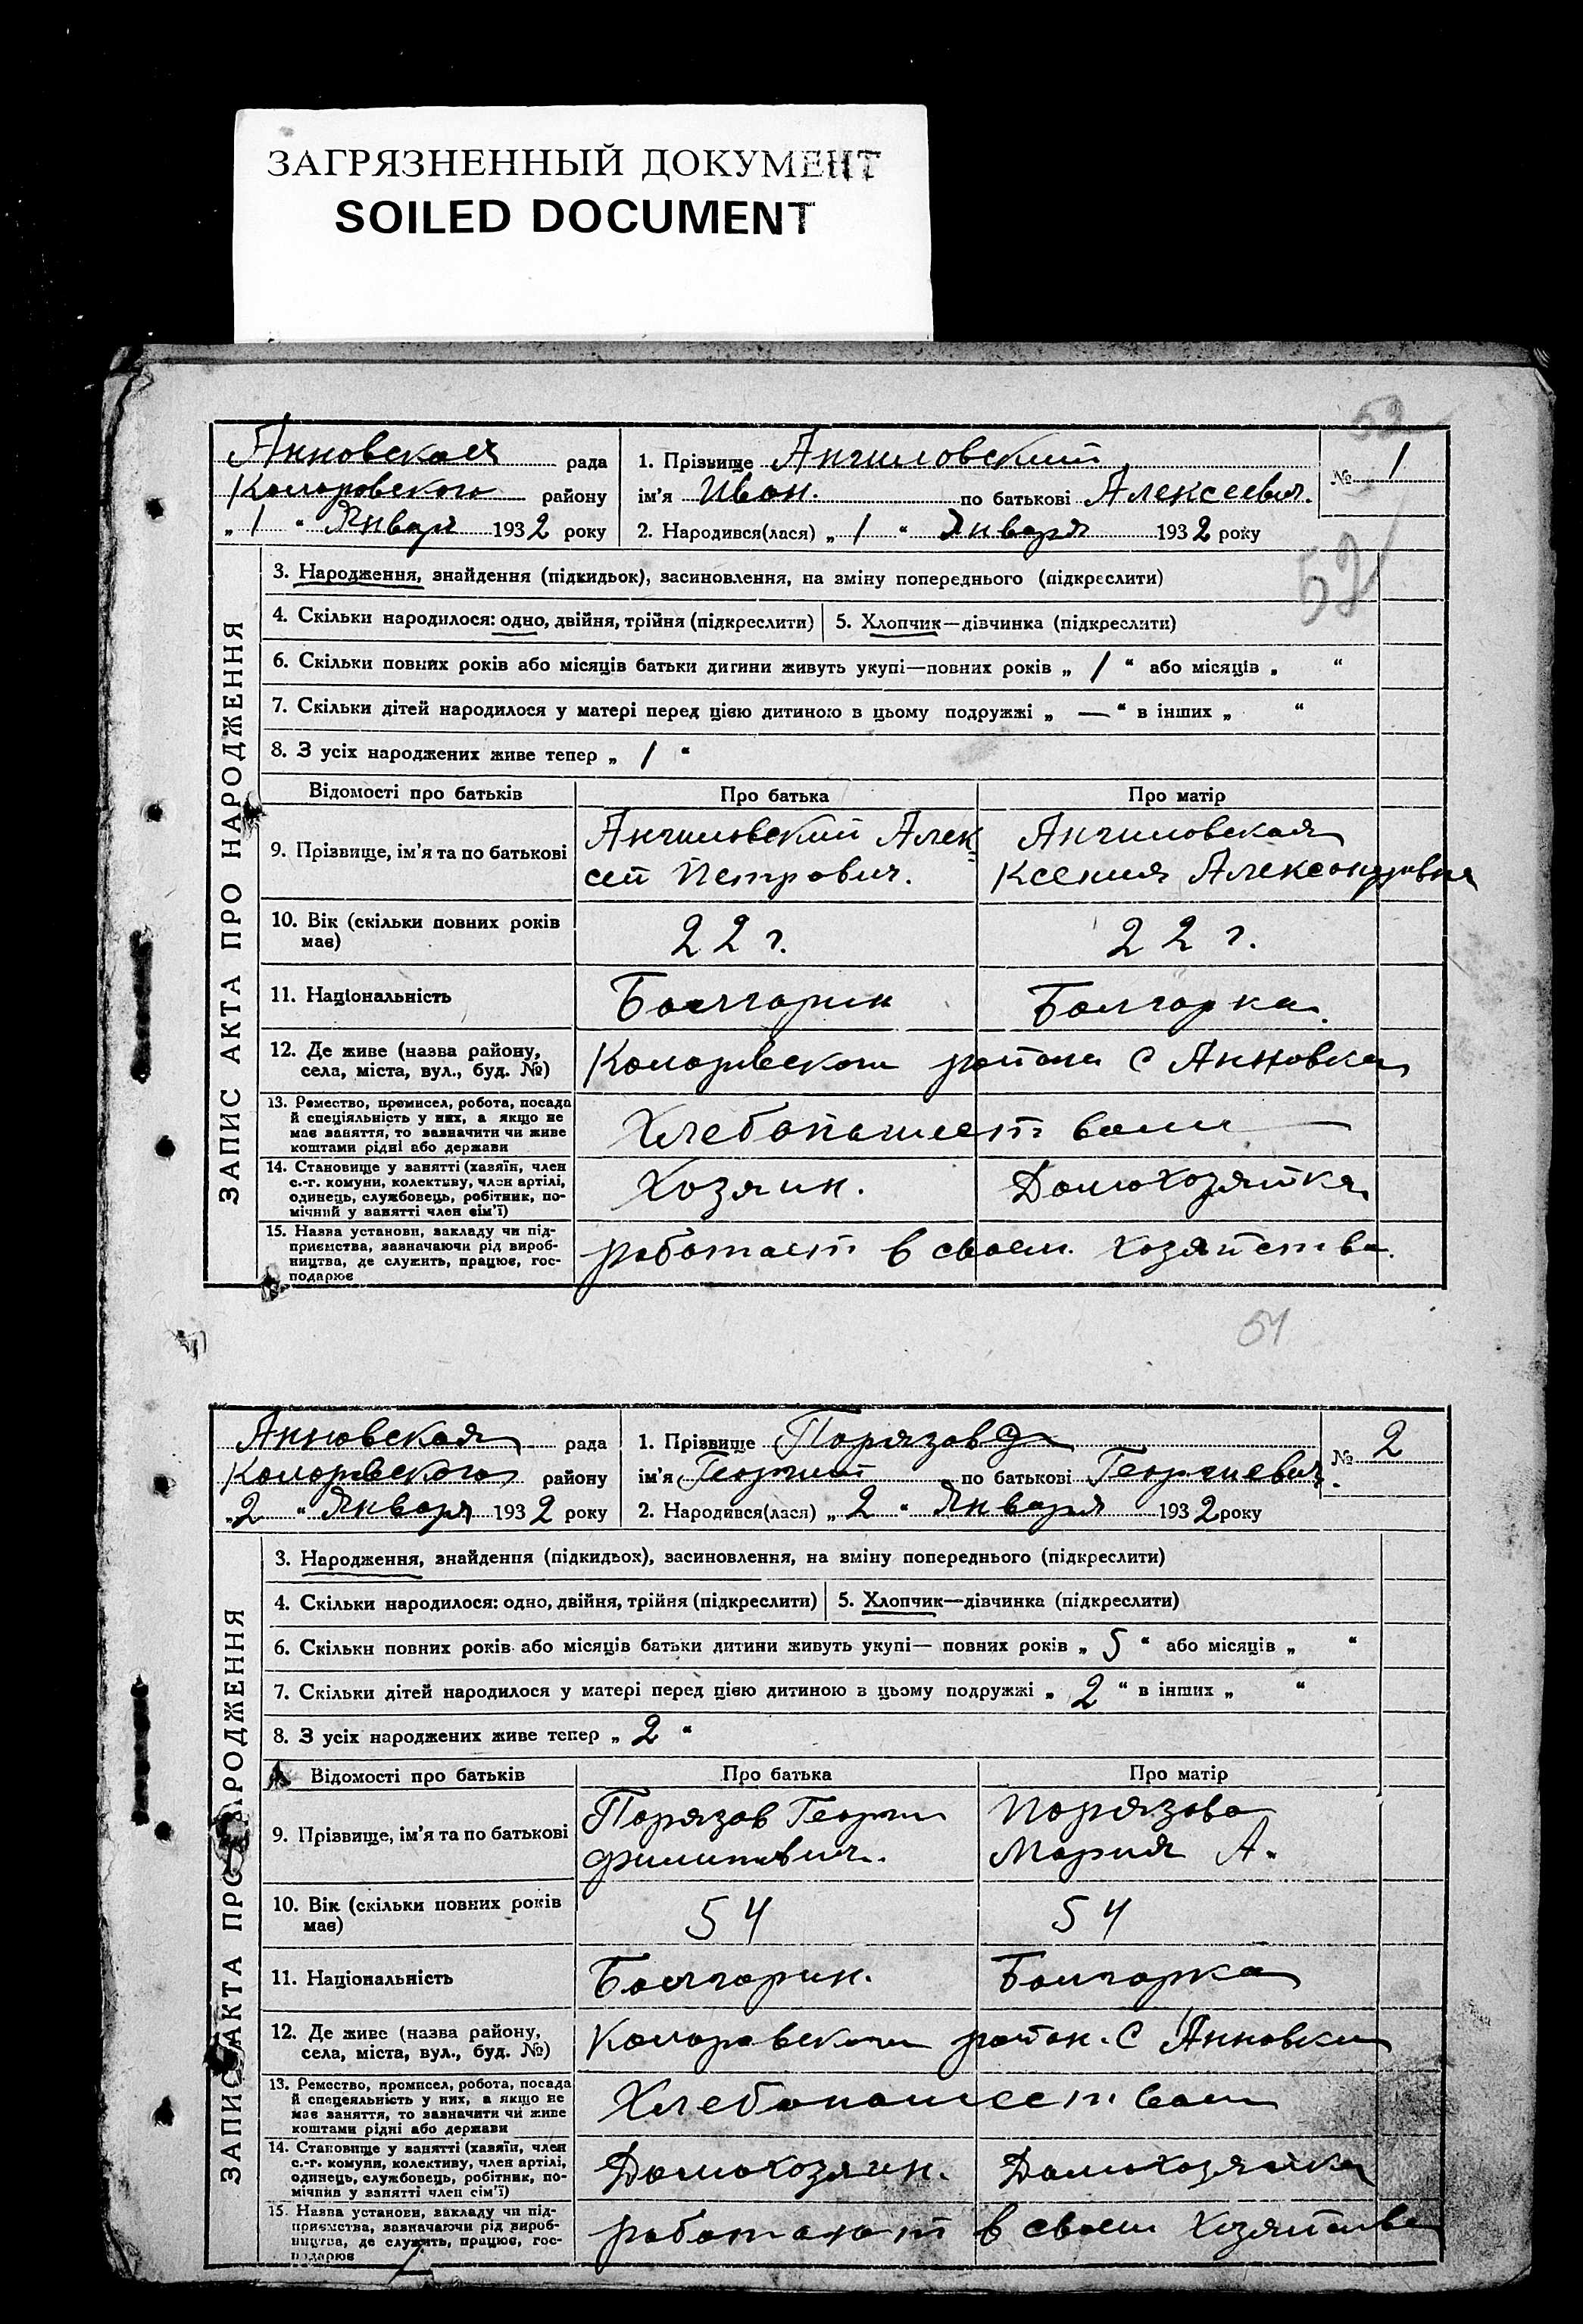 ЗАГРЯЗНЕННЫЙ ДОКУМЕНТ
SOILED DOCUMENT
52
Анновская рада
Коларовского району
„ 1 “ Января 1932 року
1. Прізвище Ангиловский
ім’я Иван. по батькові Алексеевич.
2. Народився(лася) „ 1 “ Января 1932 року
№ 1
52
ЗАПИС АКТА ПРО НАРОДЖЕННЯ
3. Народження, знайдення (підкидьок), засиновлення, на зміну попереднього (підкреслити)
4. Скільки народилося: одно, двійня, трійня (підкреслити) 5. Хлопчик—дівчинка (підкреслити)
6. Скільки повних років або місяців батьки дитини живуть укупі—повних років „ 1 “ або місяців „ “
7. Скільки дітей народилося у матері перед цією дитиною в цьому подружжі „ — “ в інших „ “
8. З усіх народжених живе тепер „ 1 “
Відомості про батьків Про батька Про матір
9. Прізвище, ім’я та по батькові
Ангиловский Алек
сей Петрович.
Ангиловская
Ксения Александровна
10. Вік (скільки повних років
має)
22 г. 22 г.
11. Національність Болгарин Болгарка.
12. Де живе (назва району,
села, міста, вул., буд. №)
Коларовского района С Анновка
13. Ремество, промисел, робота, посада
й спеціяльність у них, а якщо не
має заняття, то зазначити чи живе
коштами рідні або держави
Хлебопашеством
14. Становище у занятті (хазяїн, член
с.-г. комуни, колективу, член артілі,
одинець, службовець, робітник, по-
мічний у занятті член сім’ї)
Хозяин. Домохозяйка
15. Назва установи, закладу чи під-
приємства, зазначаючи рід вироб-
ництва, де служить, працює, гос-
подарює
работает в своем хозяйстве.
51
Анновская рада
Коларовского району
„ 2 “ Января 1932 року
1. Прізвище Порязов
ім’я Георгий по батькові Георгиевич.
2. Народився(лася) „ 2 “ Января 1932 року
№ 2
ЗАПИС АКТА ПРО НАРОДЖЕННЯ
3. Народження, знайдення (підкидьок), засиновлення, на зміну попереднього (підкреслити)
4. Скільки народилося: одно, двійня, трійня (підкреслити) 5. Хлопчик—дівчинка (підкреслити)
6. Скільки повних років або місяців батьки дитини живуть укупі— повних років „ 5 “ або місяців „ “
7. Скільки дітей народилося у матері перед цією дитиною в цьому подружжі „ 2 “ в інших „ “
8. З усіх народжених живе тепер „ 2 “
Відомості про батьків Про батька Про матір
9. Прізвище, ім’я та по батькові
Порязов Георги
Филипович.
Порязова
Мария А.
10. Вік (скільки повних років
має)
54 54
11. Національність Болгарин. Болгарка
12. Де живе (назва району,
села, міста, вул., буд. №)
Коларовского район. С Анновки
13. Ремество, промисел, робота, посада
й спецеяльність у них, а якщо не
має заняття, то зазначити чи живе
коштами рідні або держави
Хлебопашеством
14. Становище у занятті (хазяїн, член
с.-г. комуни, колективу, член артілі,
одинець, службовець, робітник, по-
мічник у занятті член сім’ї)
Домохозяин. Домохозяйка
15. Назва установи, закладу чи під-
приємства, зазначаючи рід вироб-
ництва, де служить, працює, гос-
подарює
работают в своем хозяйстве